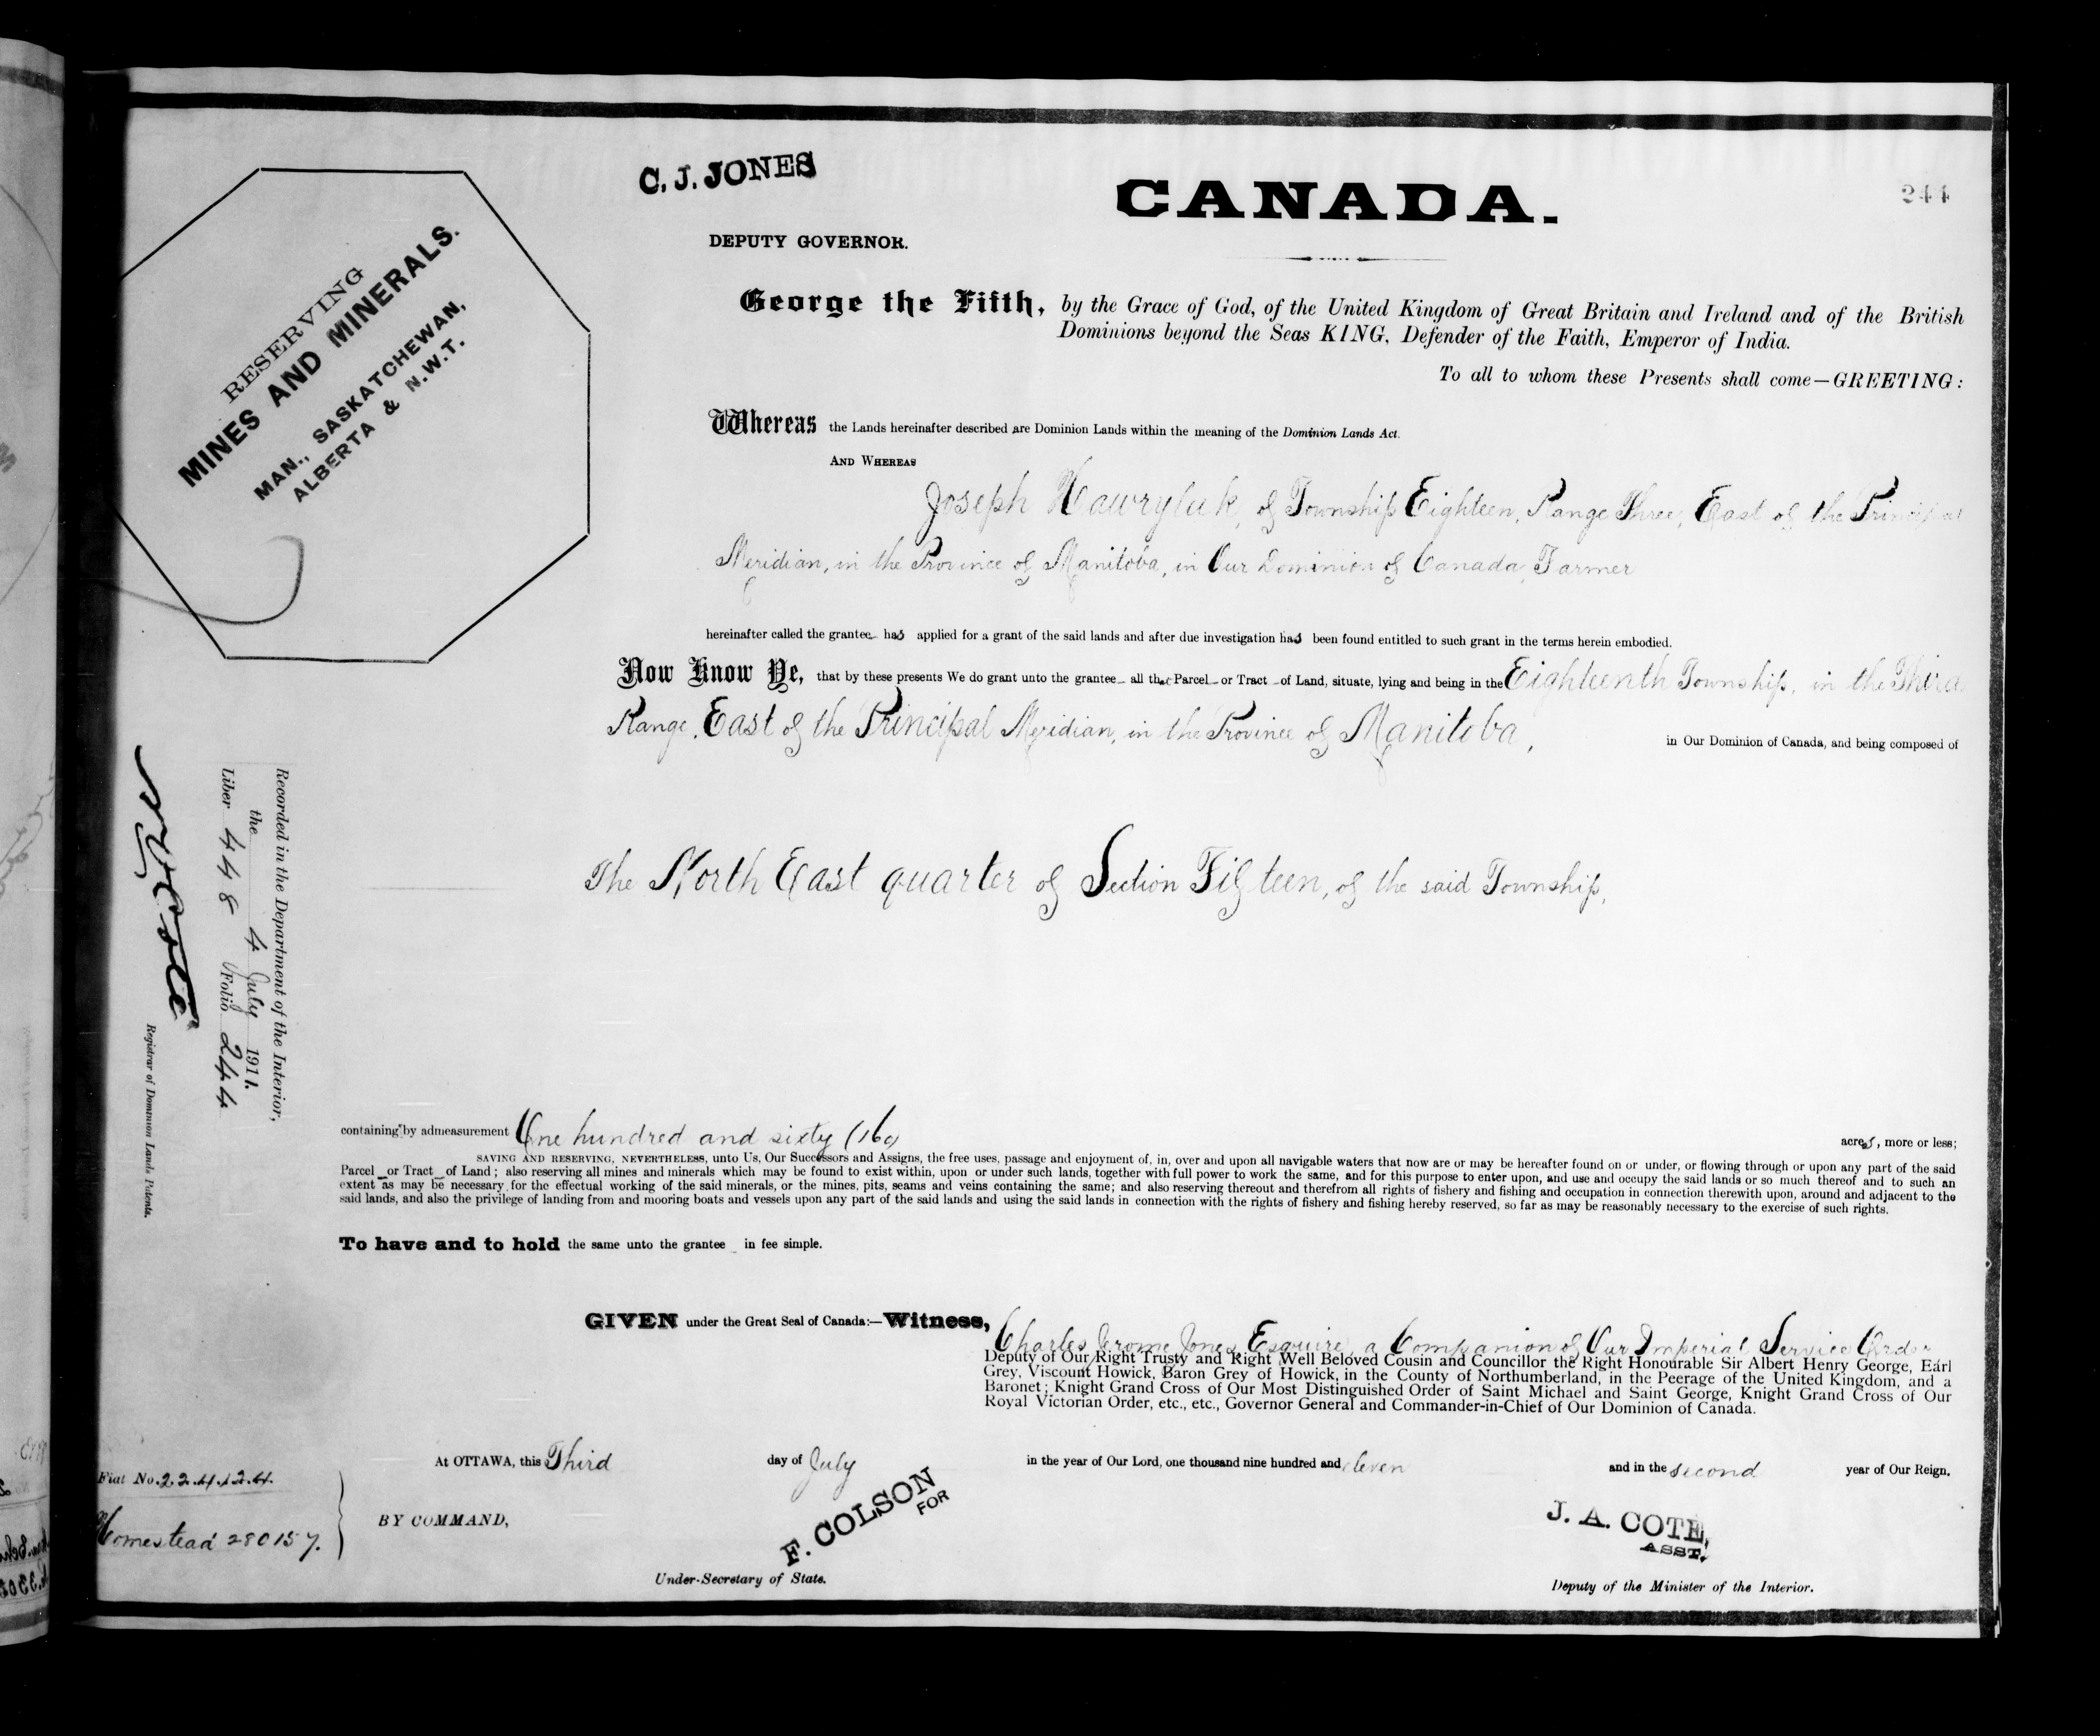 C. J. JONES
CANADA.
244
DEPUTY GOVERNOR.
RESERVING
MINES AND MINERALS.
MAN., SASKATCHEWAN,
ALBERTA & N.W.T.
George the Fifth, by the Grace of God, of the United Kingdom of Great Britain and Ireland and of the British
Dominions beyond the Seas KING, Defender of the Faith, Emperor of India.
To all to whom these Presents shall come—GREETING:
Whereas the Lands hereinafter described are Dominion Lands within the meaning of the Dominion Lands Act.
AND WHEREAS
Joseph Hawryluk, of Township Eighteen, Range Three, East of the Principal
Meridian, in the Province of Manitoba, in Our Dominion of Canada, Farmer
hereinafter called the grantee has applied for a grant of the said lands and after due investigation has been found entitled to such grant in the terms herein embodied.
Now Know Ye, that by these presents We do grant unto the grantee all that Parcel or Tract of Land, situate, lying and being in the Eighteenth Township, in the Third
Range, East of the Principal Meridian, in the Province of Manitoba, in Our Dominion of Canada, and being composed of
The North East quarter of Section Fifteen, of the said Township,
Recorded in the Department of the Interior,
the 4 July 1911.
Liber 448 Folio 244
Registrar of Dominion Lands Patents.
containing by admeasurement One hundred and sixty (160) acres, more or less;
SAVING AND RESERVING, NEVERTHELESS, unto Us, Our Successors and Assigns, the free uses, passage and enjoyment of, in, over and upon all navigable waters that now are or may be hereafter found on or under, or flowing through or upon any part of the said
Parcel or Tract of Land; also reserving all mines and minerals which may be found to exist within, upon or under such lands, together with full power to work the same, and for this purpose to enter upon, and use and occupy the said lands or so much thereof and to such an
extent as may be necessary for the effectual working of the said minerals, or the mines, pits, seams and veins containing the same; and also reserving thereout and therefrom all rights of fishery and fishing and occupation in connection therewith upon, around and adjacent to the
said lands, and also the privilege of landing from and mooring boats and vessels upon any part of the said lands and using the said lands in connection with the rights of fishery and fishing hereby reserved, so far as may be reasonably necessary to the exercise of such rights.
To have and to hold the same unto the grantee in fee simple.
GIVEN under the Great Seal of Canada:—Witness,
Charles Jerome Jones Esquire, a Companion of Our Imperial Service Order
Deputy of Our Right Trusty and Right Well Beloved Cousin and Councillor the Right Honourable Sir Albert Henry George, Earl
Grey, Viscount Howick, Baron Grey of Howick, in the County of Northumberland, in the Peerage of the United Kingdom, and a
Baronet; Knight Grand Cross of Our Most Distinguished Order of Saint Michael and Saint George, Knight Grand Cross of Our
Royal Victorian Order, etc., etc., Governor General and Commander-in-Chief of Our Dominion of Canada.
At OTTAWA, this Third day of July in the year of Our Lord, one thousand nine hundred and eleven and in the second year of Our Reign.
Fiat No. 224124.
Homestead 280157.
BY COMMAND,
F. COLSON
FOR
Under-Secretary of State.
J. A. COTE,
ASST.
Deputy of the Minister of the Interior.